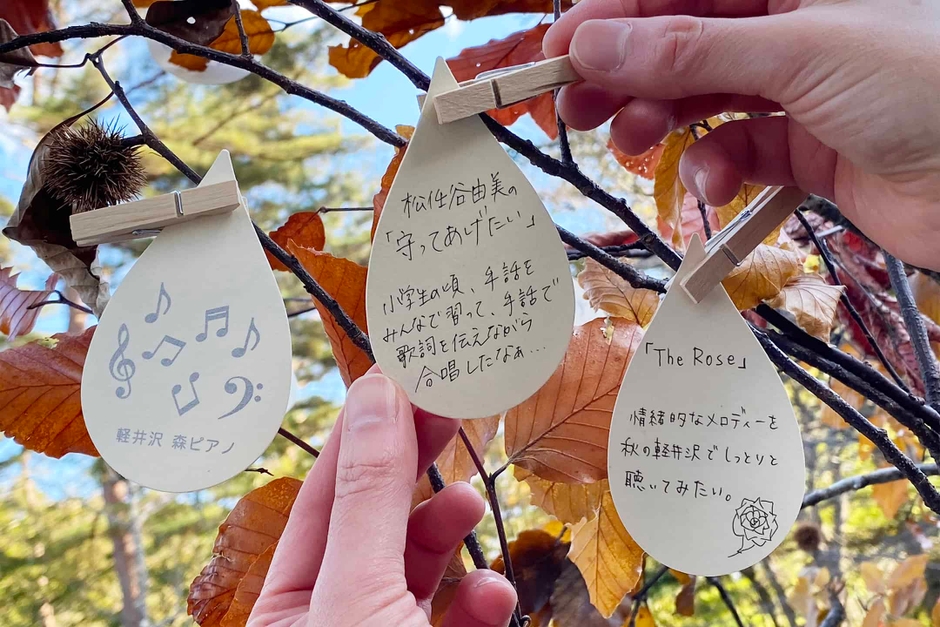 軽井沢 森ピアノ
松任谷由実の
「守ってあげたい」
小学生の頃、手話を
みんなで習って、手話で
歌詞を伝えながら
合唱したなぁ…
「The Rose」
情緒的なメロディーを
秋の軽井沢でしっとりと
聴いてみたい。